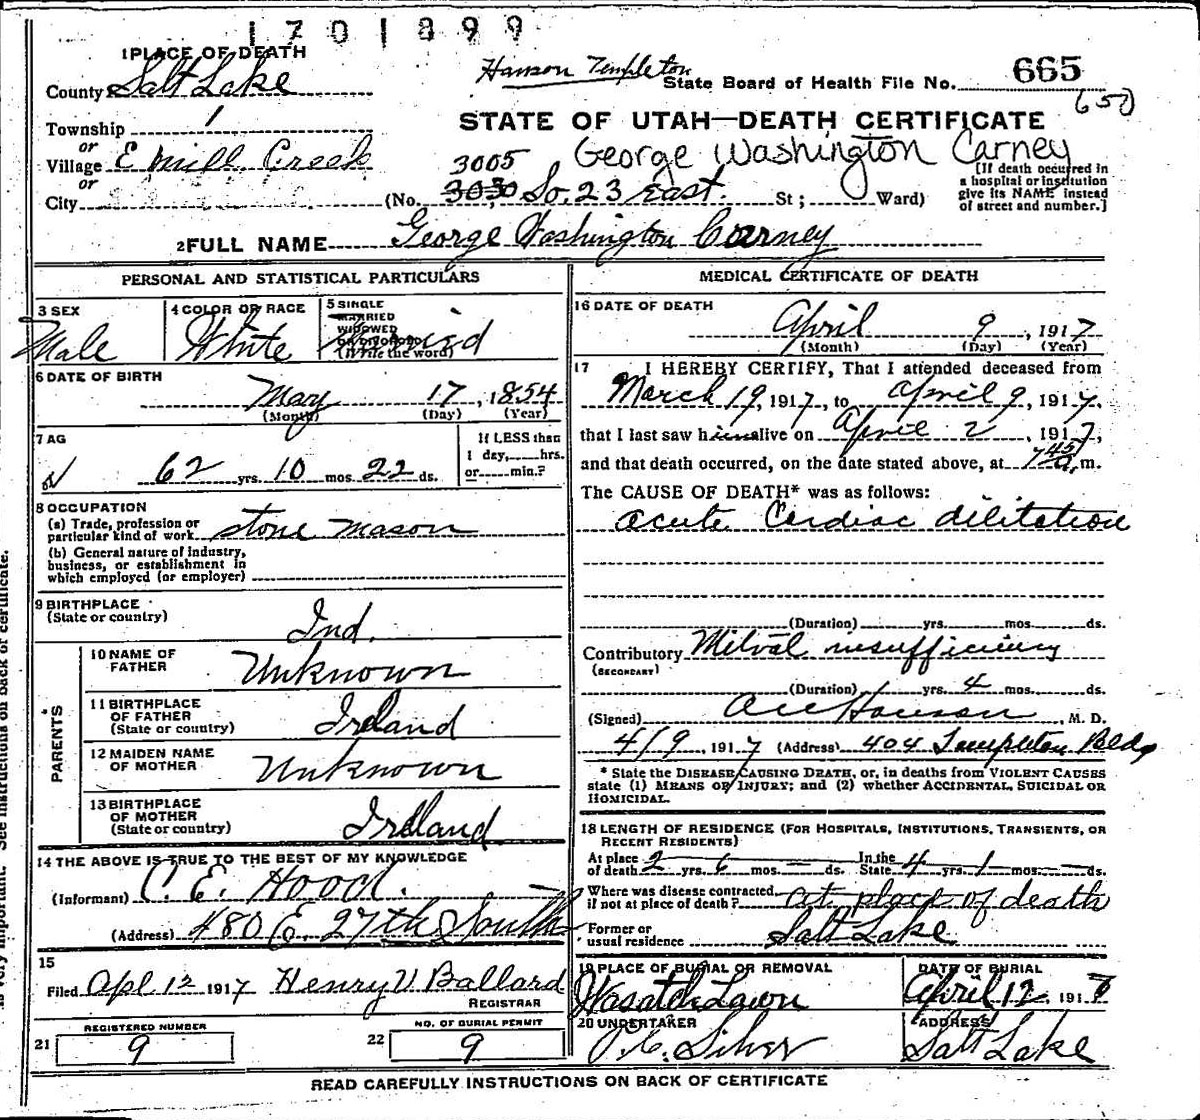 1701899
1 PLACE OF DEATH
Hanson Templeton
State Board of Health File No. 665
County Salt Lake
657
Township 1
STATE OF UTAH—DEATH CERTIFICATE
or
Village E Mill Creek
3005 George Washington Carney
or
City (No. 3030 So. 23 East. St; Ward)
[If death occurred in
a hospital or institution
give its NAME instead
of street and number.]
2 FULL NAME George Washington Carney
PERSONAL AND STATISTICAL PARTICULARS
3 SEX
Male
4 COLOR OR RACE
White
5 SINGLE
MARRIED
WIDOWED
OR DIVORCED
(Write the word)
Married
6 DATE OF BIRTH
May 17, 1854
(Month) (Day) (Year)
7 AG
62 yrs. 10 mos. 22 ds.
If LESS than
1 day, hrs.
or min.?
8 OCCUPATION
(a) Trade, profession or
particular kind of work stone mason
(b) General nature of industry,
business, or establishment in
which employed (or employer)
9 BIRTHPLACE
(State or country)
Ind.
PARENTS
10 NAME OF
FATHER
Unknown
11 BIRTHPLACE
OF FATHER
(State or country)
Ireland
12 MAIDEN NAME
OF MOTHER
Unknown
13 BIRTHPLACE
OF MOTHER
(State or country)
Ireland
14 THE ABOVE IS TRUE TO THE BEST OF MY KNOWLEDGE
(Informant) C. E. Hood.
(Address) 480 E. 27th South
15
Filed Apl 12 1917 Henry V Ballard
REGISTRAR
REGISTERED NUMBER
21 9
NO. OF BURIAL PERMIT
22 9
MEDICAL CERTIFICATE OF DEATH
16 DATE OF DEATH
April 9, 1917
(Month) (Day) (Year)
17 I HEREBY CERTIFY, That I attended deceased from
March 19, 1917, to April 9, 1917,
that I last saw him alive on April 2, 1917,
and that death occurred, on the date stated above, at 7 45 a, m.
The CAUSE OF DEATH* was as follows:
acute Cardiac dilitation
(Duration) yrs. mos. ds.
Contributory Mitral insufficiency
(SECONDARY)
(Duration) yrs. 4 mos. ds.
(Signed) Hanson, M. D.
4/9, 1917 (Address) 404 Templeton Bldg
* State the DISEASE CAUSING DEATH, or, in deaths from VIOLENT CAUSES
state (1) MEANS OF INJURY; and (2) whether ACCIDENTAL, SUICIDAL OR
HOMICIDAL.
18 LENGTH OF RESIDENCE (FOR HOSPITALS, INSTITUTIONS, TRANSIENTS, OR
RECENT RESIDENTS)
At place In the
of death 2 yrs. 6 mos. — ds. State 4 yrs. 1 mos. — ds.
Where was disease contracted,
if not at place of death? at place of death
Former or
usual residence Salt Lake
19 PLACE OF BURIAL OR REMOVAL
Wasatch Lawn
DATE OF BURIAL
April 12 1917
20 UNDERTAKER
Silver
ADDRESS
Salt Lake
READ CAREFULLY INSTRUCTIONS ON BACK OF CERTIFICATE
very important. See instructions on back of certificate.